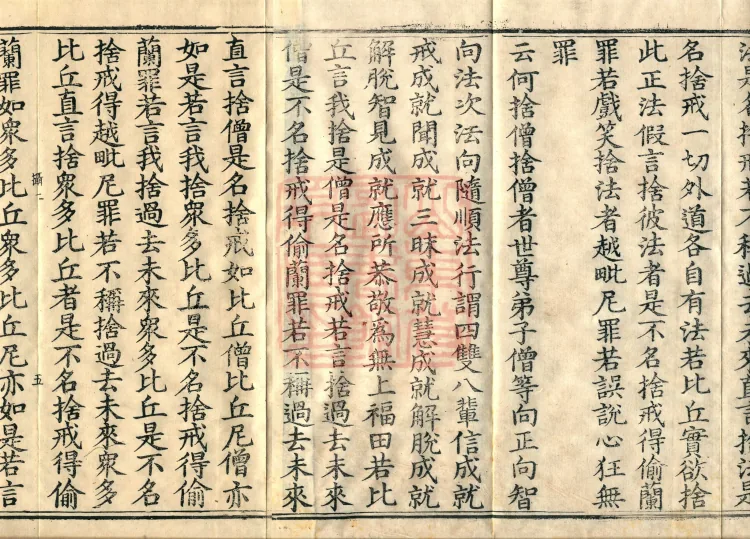 名捨戒一切外道各自有法若比丘實欲捨
此正法假言捨彼法者是不名捨戒得偷蘭
罪若戲笑捨法者越毗尼罪若誤說心狂無
罪
云何捨僧捨僧者世尊弟子僧等向正向智
向法次法向隨順法行謂四雙八輩信成就
戒成就聞成就三昧成就慧成就解脫成就
解脫智見成就應所恭敬爲無上福田若比
丘言我捨是僧是名捨戒若言捨過去未來
僧是不名捨戒得偷蘭罪若不稱過去未來
直言捨僧是名捨戒如比丘僧比丘尼僧亦
如是若言我捨衆多比丘是不名捨戒得偷
蘭罪若言我捨過去未來衆多比丘是不名
捨戒得越毗尼罪若不稱捨過去未來衆多
比丘直言捨衆多比丘者是不名捨戒得偷
攝二 五
蘭罪如衆多比丘衆多比丘尼亦如是若言